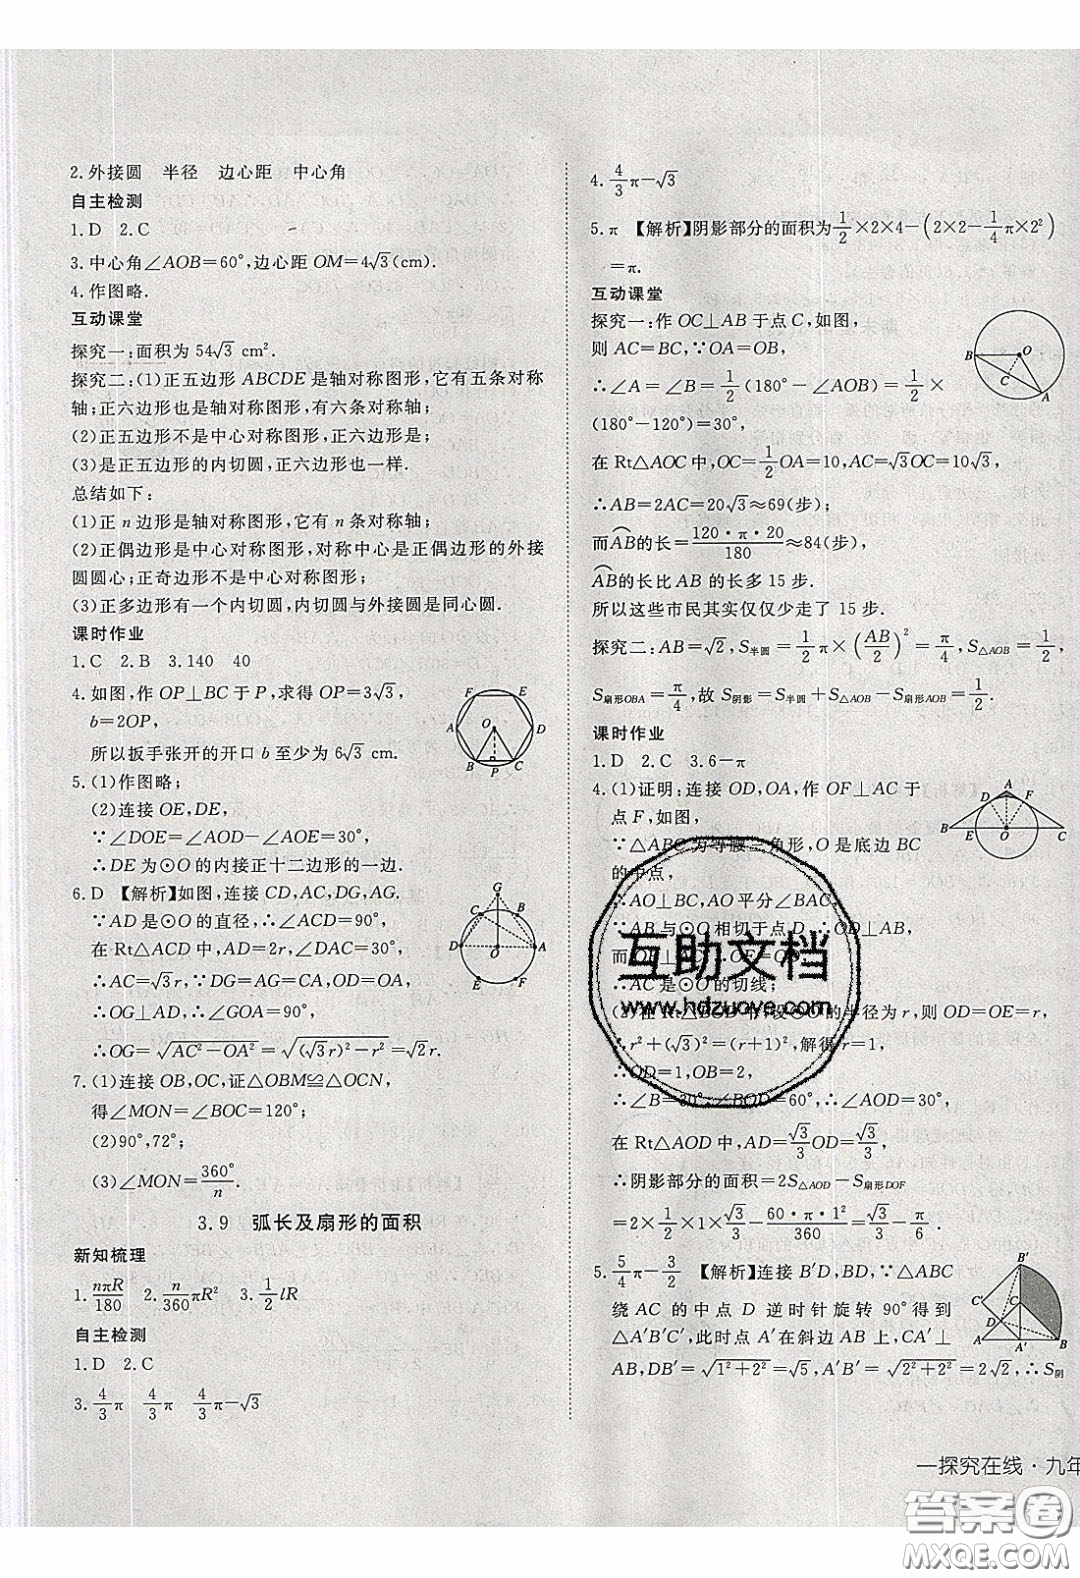 2.外接圆 半径 边心距 中心角
自主检测
1.D 2.C
3.中心角∠AOB=60°,边心距 OM=4√3(cm).
4.作图略.
互动课堂
探究一:面积为 54√3 cm².
探究二:(1)正五边形 ABCDE 是轴对称图形,它有五条对称
轴;正六边形也是轴对称图形,有六条对称轴;
(2)正五边形不是中心对称图形,正六边形是;
(3)是正五边形的内切圆,正六边形也一样.
总结如下:
(1)正 n 边形是轴对称图形,它有 n 条对称轴;
(2)正偶边形是中心对称图形,对称中心是正偶边形的外接
圆圆心;正奇边形不是中心对称图形;
(3)正多边形有一个内切圆,其与外接圆是同心圆.
课时作业
1.C 2.B 3.140 40
4.如图,作 OP⊥BC 于 P,求得 OP=3√3,
b=2OP,
所以扳手张开的开口 b 至少为 6√3 cm.
F E A O D B P C
5.(1)作图略;
(2)连接 OE,DE,
∵∠DOE=∠AOD-∠AOE=30°,
∴DE 为⊙O 的内接正十二边形的一边.
6.D 【解析】如图,连接 CD,AC,DG,AG.
∵AD 是⊙O 的直径,∴∠ACD=90°,
在 Rt△ACD 中,AD=2r,∠ADC=60°,
∴AC=√3r,∵DG=AG=CA=√3r,
∴OG⊥AD,∴∠GOA=90°,
∴OG=√(AC²-OA²)=√((√3r)²-r²)=√2r.
G C B D O A E F
7.(1)连接 OB,OC,证△OBM≌△OCN,
得∠MON=∠BOC=120°;
(2)90°,72°;
(3)∠MON=360°/n.
3.9 弧长及扇形的面积
新知梳理
1.nπR/180 2.n/360 πR² 3.1/2 lR
自主检测
1.D 2.C
3.4/3 π 4/3 π 4/3 π-√3
4.4/3 π-√3
5.π 【解析】阴影部分的面积为1/2×2×4-(2×2-1/4π×2²)
=π.
互动课堂
探究一:作 OC⊥AB 于点 C,如图,
则 AC=BC,∵OA=OB,
∴∠A=∠B=1/2(180°-∠AOB)=1/2×
(180°-120°)=30°,
B O C A
在 Rt△AOC 中,OC=1/2OA=10,AC=√3OC=10√3,
∴AB=2AC=20√3≈69(步),
而⌒AB的长=120·π·20/180≈84(步),
⌒AB的长比 AB 的长多 15 步.
所以这些市民其实仅仅少走了 15 步.
探究二:AB=√2,S半圆=1/2π×(AB/2)²=π/4,S△AOB=1/2,
S扇形OBA=π/4,故 S阴影=S半圆+S△AOB-S扇形AOB=1/2.
课时作业
1.D 2.C 3.6-π
4.(1)证明:连接 OD,OA,作 OF⊥AC 于
点 F,如图,
∵△ABC 为等腰三角形,O 是底边 BC
的中点,
A D F B E O C
∴AO⊥BC,AO 平分∠BAC,
∵AB 与⊙O 相切于点 D,∴OD⊥AB,
而 OF⊥AC,∴OF=OD,
∴AC 是⊙O 的切线;
(2)在 Rt△BOD 中,设⊙O 的半径为 r,则 OD=OE=r,
∴r²+(√3)²=(r+1)²,解得 r=1,
∴OD=1,OB=2,
∴∠B=30°,∠BOD=60°,∴∠AOD=30°,
在 Rt△AOD 中,AD=√3/3 OD=√3/3,
∴阴影部分的面积=2S△AOD-S扇形DOF
=2×1/2×1×√3/3-60·π·1²/360=√3/3-π/6.
5.5/4 π-3/2 【解析】连接 B′D,BD,∵△ABC
绕 AC 的中点 D 逆时针旋转 90°得到
△A′B′C′,此时点 A′在斜边 AB 上,CA′⊥
AB,DB′=√(1²+2²)=√5,A′B′=√(2²+2²)=2√2,∴S阴
B′ C′ C D A A′ B
互助文档
www.hdzuoye.com
一探究在线·九年
答案圈
MXQE.COM